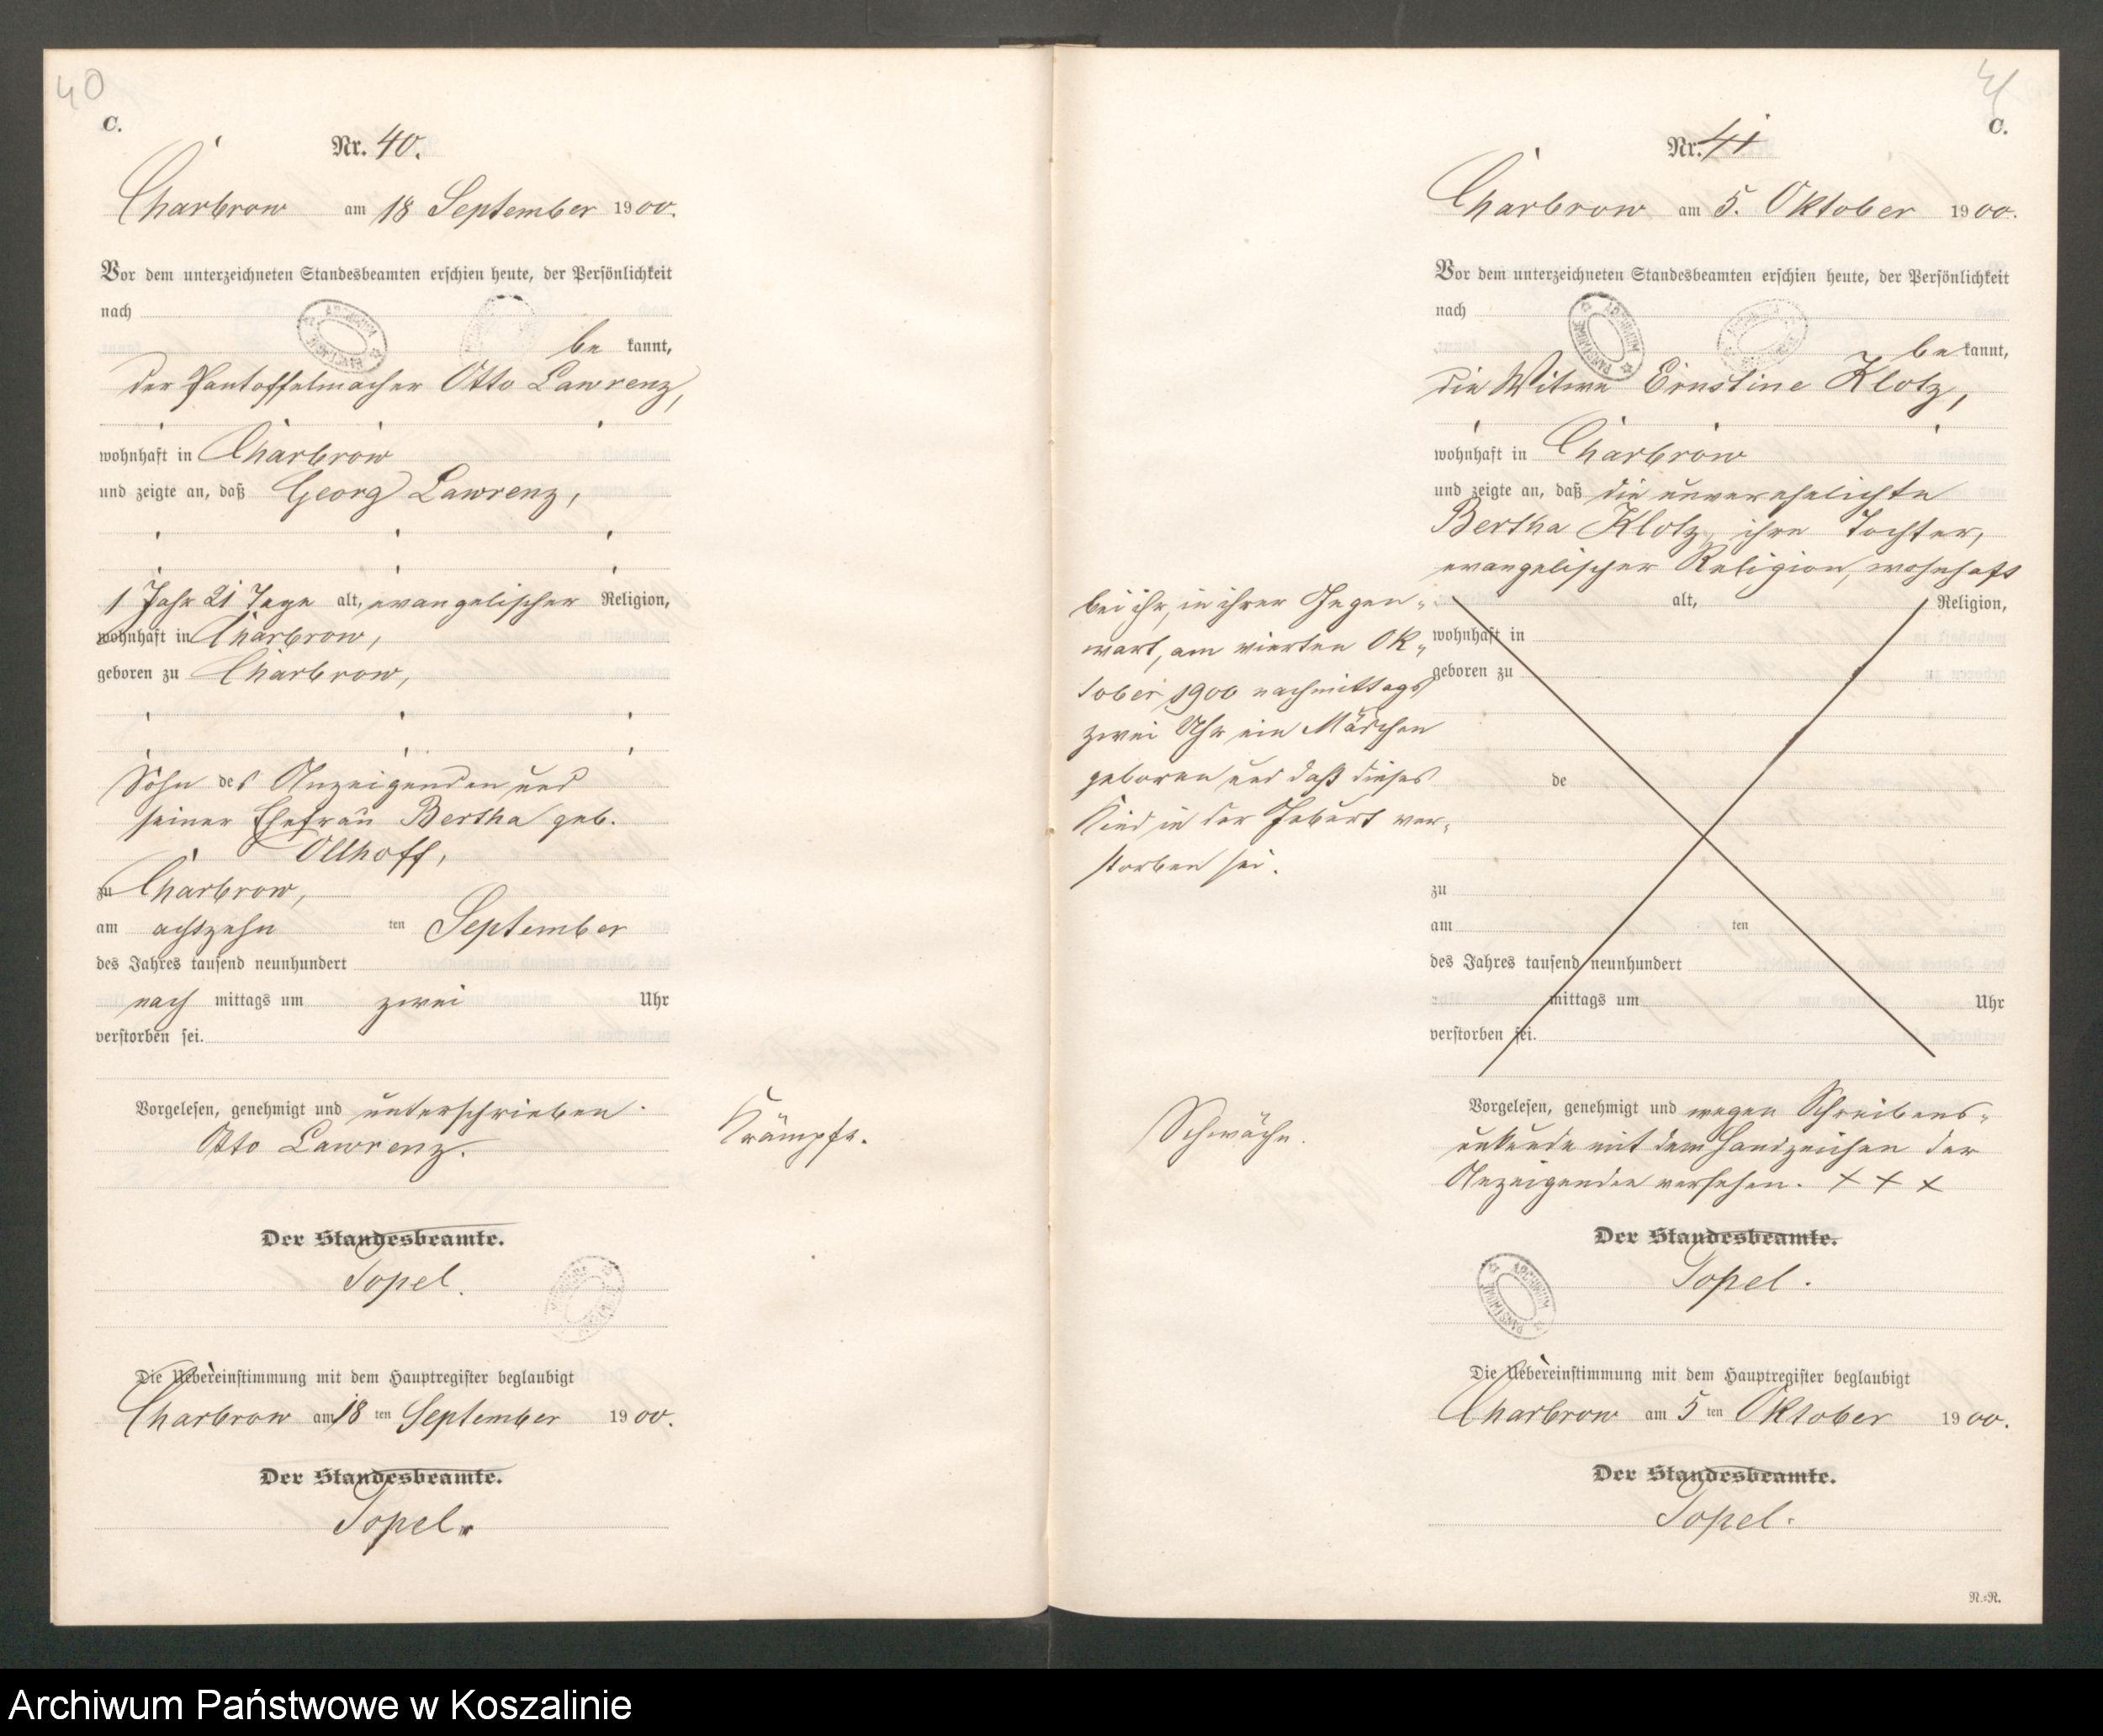 40
C.
Nr. 40.
Charbrow am 18 September 1900.
Vor dem unterzeichneten Standesbeamten erschien heute, der Persönlichkeit
nach
be kannt,
der Pantoffelmacher Otto Lawrenz,
wohnhaft in Charbrow
und zeigte an, daß Georg Lawrenz,
1 Jahr 21 Tage alt, evangelischer Religion,
wohnhaft in Charbrow,
geboren zu Charbrow,
Sohn des Anzeigenden und
seiner Ehefrau Bertha geb.
Ollhoff,
zu Charbrow,
am achtzehn ten September
des Jahres tausend neunhundert
nach mittags um zwei Uhr
verstorben sei.
Vorgelesen, genehmigt und unterschrieben.
Otto Lawrenz.
Krämpfe.
Der Standesbeamte.
Topel.
Die Uebereinstimmung mit dem Hauptregister beglaubigt
Charbrow am 18 ten September 1900.
Der Standesbeamte.
Topel.
41
C.
Nr. 41
Charbrow am 5. Oktober 1900.
Vor dem unterzeichneten Standesbeamten erschien heute, der Persönlichkeit
nach
be kannt,
die Witwe Ernstine Klotz,
wohnhaft in Charbrow
und zeigte an, daß die unverehelichte
Bertha Klotz, ihre Tochter,
evangelischer Religion, wohnhaft
bei ihr, in ihrer Gegen-
wart, am vierten Ok-
tober 1900 nachmittags
zwei Uhr ein Mädchen
geboren und daß dieses
Kind in der Geburt ver-
storben sei.
alt, Religion,
wohnhaft in
geboren zu
de
zu
am ten
des Jahres tausend neunhundert
mittags um Uhr
verstorben sei.
Schwäche.
Vorgelesen, genehmigt und wegen Schreibens-
unkunde mit dem Handzeichen der
Anzeigenden versehen. + + +
Der Standesbeamte.
Topel.
ARCHIWUM PAŃSTWOWE
Die Uebereinstimmung mit dem Hauptregister beglaubigt
Charbrow am 5 ten Oktober 1900.
Der Standesbeamte.
Topel.
N.=N.
Archiwum Państwowe w Koszalinie